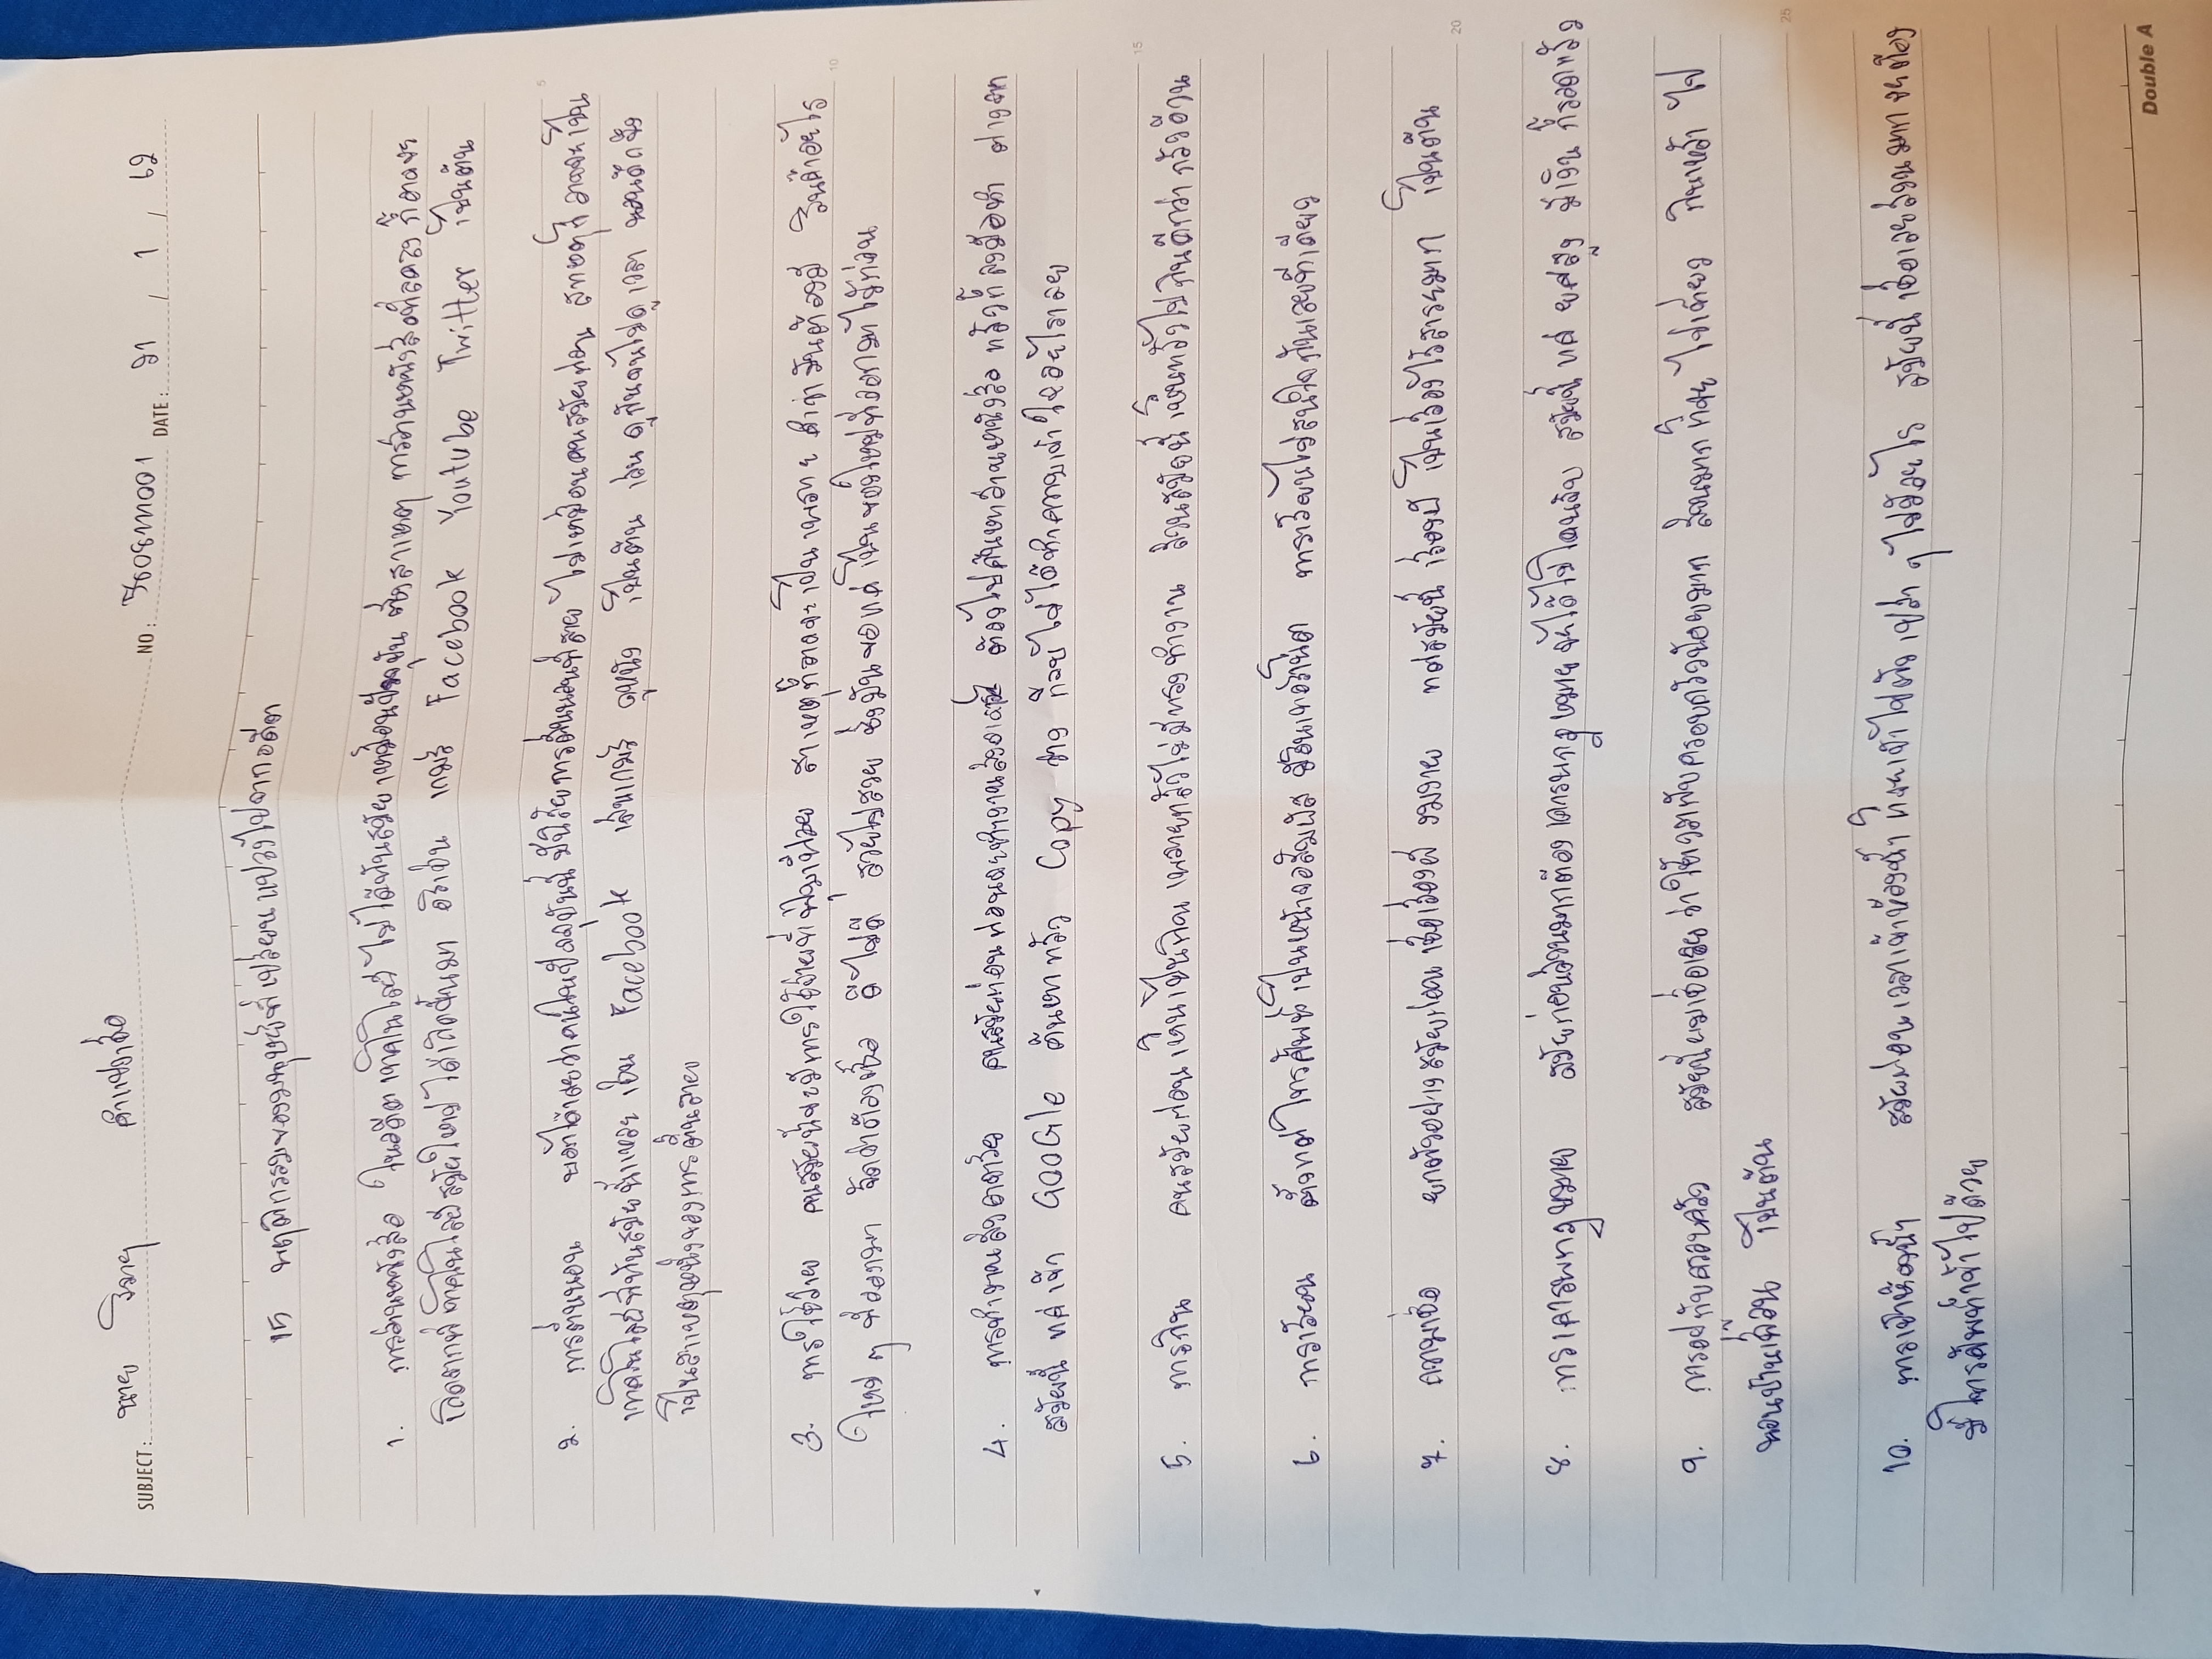 SUBJECT : นาย กำแปงเชื่อ NO : DATE : 21 / 1 / 62
15 พฤติกรรมของมนุษย์ที่เปลี่ยนแปลงไปจากอดีต
1. การอ่านหนังสือ ในอดีตเทคโนโลยี ไม่ได้ทันสมัยเหมือนปัจจุบัน ซึ่งสาเหตุ การอ่านหนังสือที่ลดลง ก็อาจจะ
เกิดจากที่เทคโนโลยีสมัยใหม่ ได้เกิดขึ้นมา อย่างเช่น เกมส์ Facebook Youtube Twitter เป็นต้น
2. การตื่นนอน บอกได้เลยว่าคนในปัจจุบันนี้ มีนิสัยการตื่นนอนที่สาย ไม่เหมือนคนสมัยก่อน สาเหตุก็อาจจะเป็น
เทคโนโลยีที่ทันสมัยนี้แหละ เช่น Facebook เล่นเกมส์ ดูหนัง เป็นต้น เล่นดูกันจนไม่ดูเวลา นอนดึกจึง
เป็นสาเหตุหนึ่งของการตื่นสาย
3. การใช้จ่าย คนสมัยนี้จะมีการใช้จ่ายที่ฟุ่มเฟือย สาเหตุก็อาจจะเป็นเพราะ คำว่ามันต้องมี สินค้าอะไร
ใหม่ ๆ ที่ออกมา จัดว่าต้องซื้อ ดีไม่ดี สวยไม่สวย ซึ่งมันขอแค่เป็นของใหม่ที่ออกมาไว้ก่อน
4. การทำงานส่งอาจารย์ คนสมัยก่อนก่อนจะทำงานส่งอาจารย์ ต้องไปค้นหาอ่านหนังสือ แล้วก็ลงมือทำ ต่างจาก
สมัยนี้ แค่เข้า GOOGle ค้นหาแล้ว Copy วาง ก็จบ ไม่ได้ทำความเข้าใจอะไรเลย
5. การกิน คนสมัยก่อนเห็นเป็นกิน เพลายแล้วไม่มีแรงทำงาน ส่วนสมัยนี้ เห็นแล้วไม่กินดีกว่า กลัวอ้วน
6. การเรียน ตั้งแต่โทรศัพท์เป็นหน้าจอสัมผัส มีอินเทอร์เน็ต การเรียนไม่สนใจกันเลยทีเดียว
7. ความเชื่อ ยกตัวอย่างสมัยก่อน เชื่อเรื่องผี งมงาย แต่สมัยนี้ เรื่องผี เป็นเรื่องไร้สาระมาก เป็นต้น
8. การเคารพกฎหมาย สมัยก่อนส่วนมากต้องเคารพกฎหมาย จะได้ไม่โดนจับ สมัยนี้ แค่ ยศสูง มีเงิน ก็รอดแล้ว
9. การอยู่กับครอบครัว สมัยนี้ผมเชื่อเลย ว่าใช้เวลากับครอบครัวน้อยมาก ส่วนมาก ก็จะ ไปเที่ยว กินเหล้า ไป
นอนบ้านเพื่อน เป็นต้น
10. การเข้าห้องน้ำ สมัยก่อนเวลาเข้าห้องน้ำ ก็จะเข้าไปตัวเปล่า ๆ ไม่มีอะไร สมัยนี้ เชื่อเลยส่วนมากจะต้อง
มีโทรศัพท์เข้าไปด้วย
5
10
15
20
25
Double A